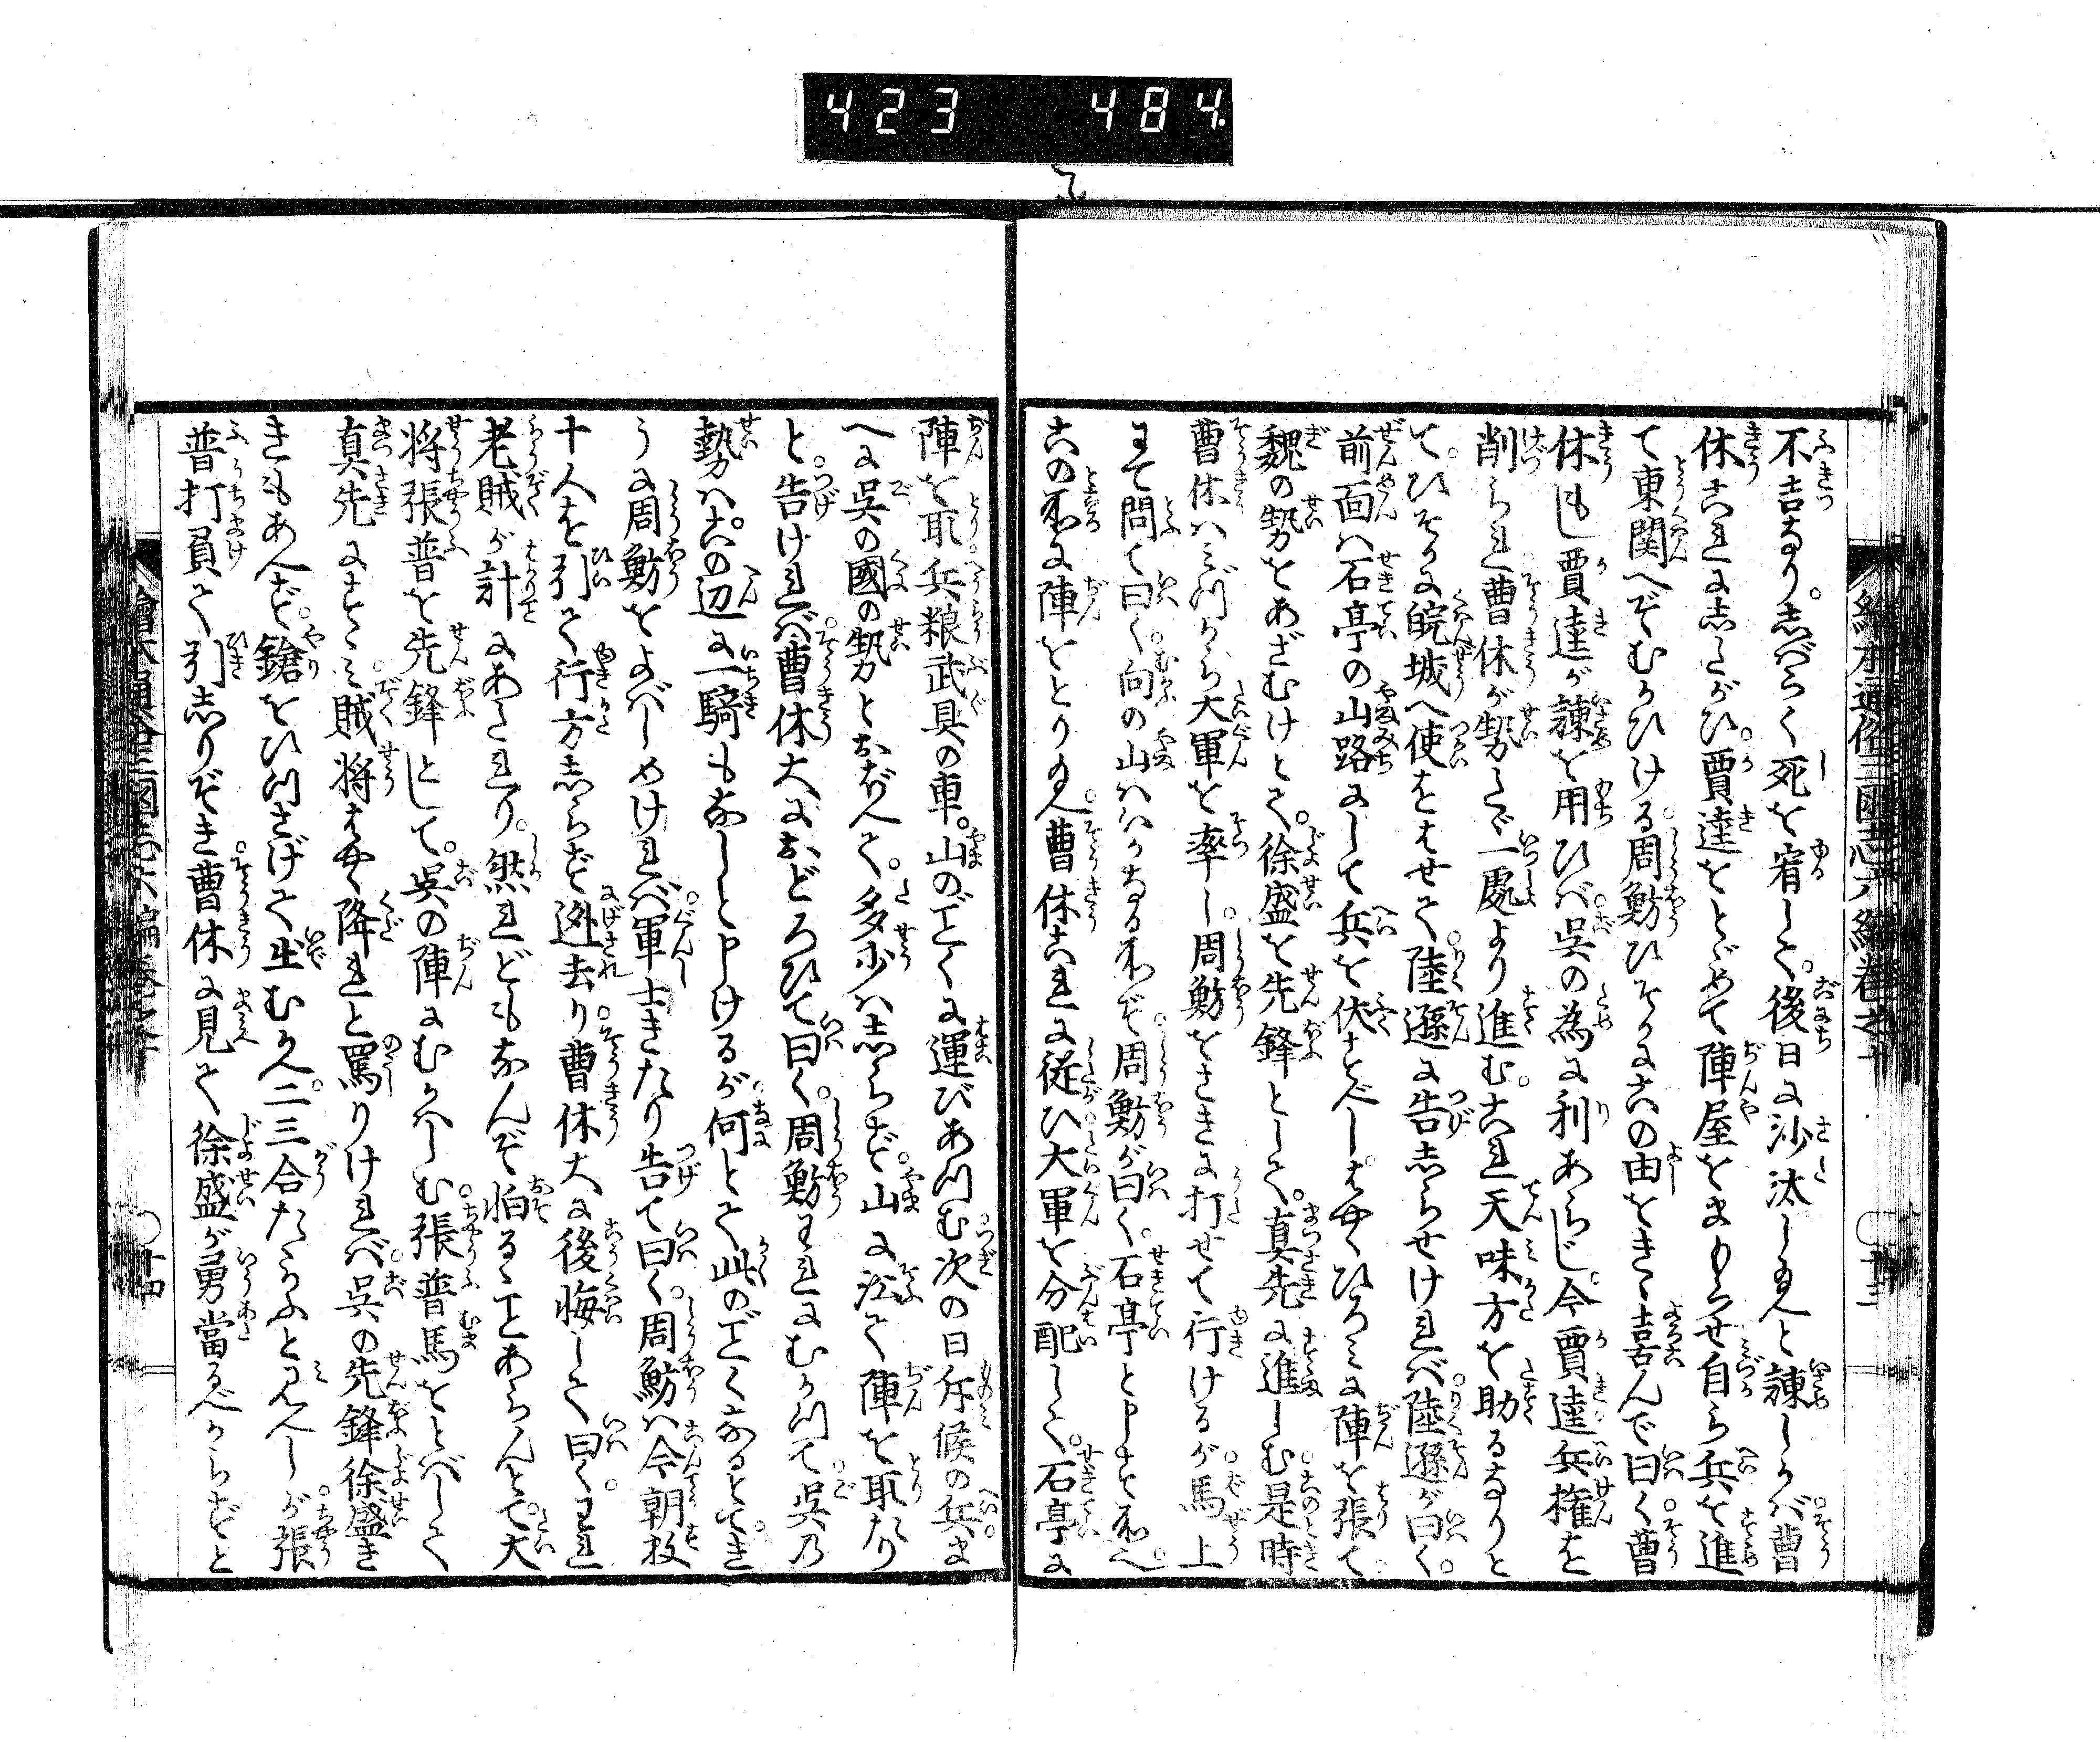 423 484
繪本通俗三國志六編卷之十 〇十三
不吉なり。志ばらく死を宥して。後日に沙汰し玉へと諫しかバ曹
休これに志たがひ。賈逵をとゞめて陣屋をまもらせ自ら兵を進
て東関へぞむかひける周魴ひそかにこの由をきゝ喜んで曰く曹
休もし賈逵が諫を用ひバ呉の為に利あらじ。今賈逵兵権を
削られ曹休が勢たゞ一處より進む。これ天味方を助るなりと
て。ひそかに皖城へ使をはせて。陸遜に告志らせけれバ陸遜が曰く。
前面ハ石亭の山路にして兵を伏すべしはやくひろミに陣を張て。
魏の勢をあざむけとて。徐盛を先鋒として。真先に進しむ是時
曹休ハミづから大軍を率し。周魴をさきに打せて行けるが馬上
にて問て曰く。向の山ハいかなる所ぞ周魴が曰く。石亭と申す所へ。
この所に陣をとり玉へ。曹休これに従ひ大軍を分配して。石亭に
陣を取兵粮武具の車。山のごとくに運びあつむ次の日斥候の兵ま
へに呉の國の勢とおぼへて。多少ハ志らず。山に沿て陣を取たり
と。告けれバ。曹休大におどろひて曰く。周魴われにむかつて呉乃
勢ハ。この辺に一騎もなしと申けるが。何とて此のごとくなるとて。き
うに周魴をよばしめけれバ。軍士きたり告て曰く。周魴ハ今朝数
十人を引て行方志らず迯去り。曹休大に後悔して曰く。われ
老賊が計にあたれり。然れどもなんぞ怕るゝことあらんとて。大
将張普を先鋒として。呉の陣にむかハしむ。張普馬をとばして
真先にすゝミ。賊将はやく降れと罵りけれバ。呉の先鋒徐盛き
きもあへず。鎗をひつさげて出むかへ。二三合たゝかふと見へしが張
普打負て引志りぞき曹休に見て徐盛が勇當るべからずと
繪本通俗三國志六編卷之十 〇十四